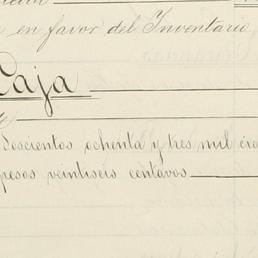 en favor del Inventario
Caja
Doscientos ochenta y tres mil cie
pesos veintiseis centavos